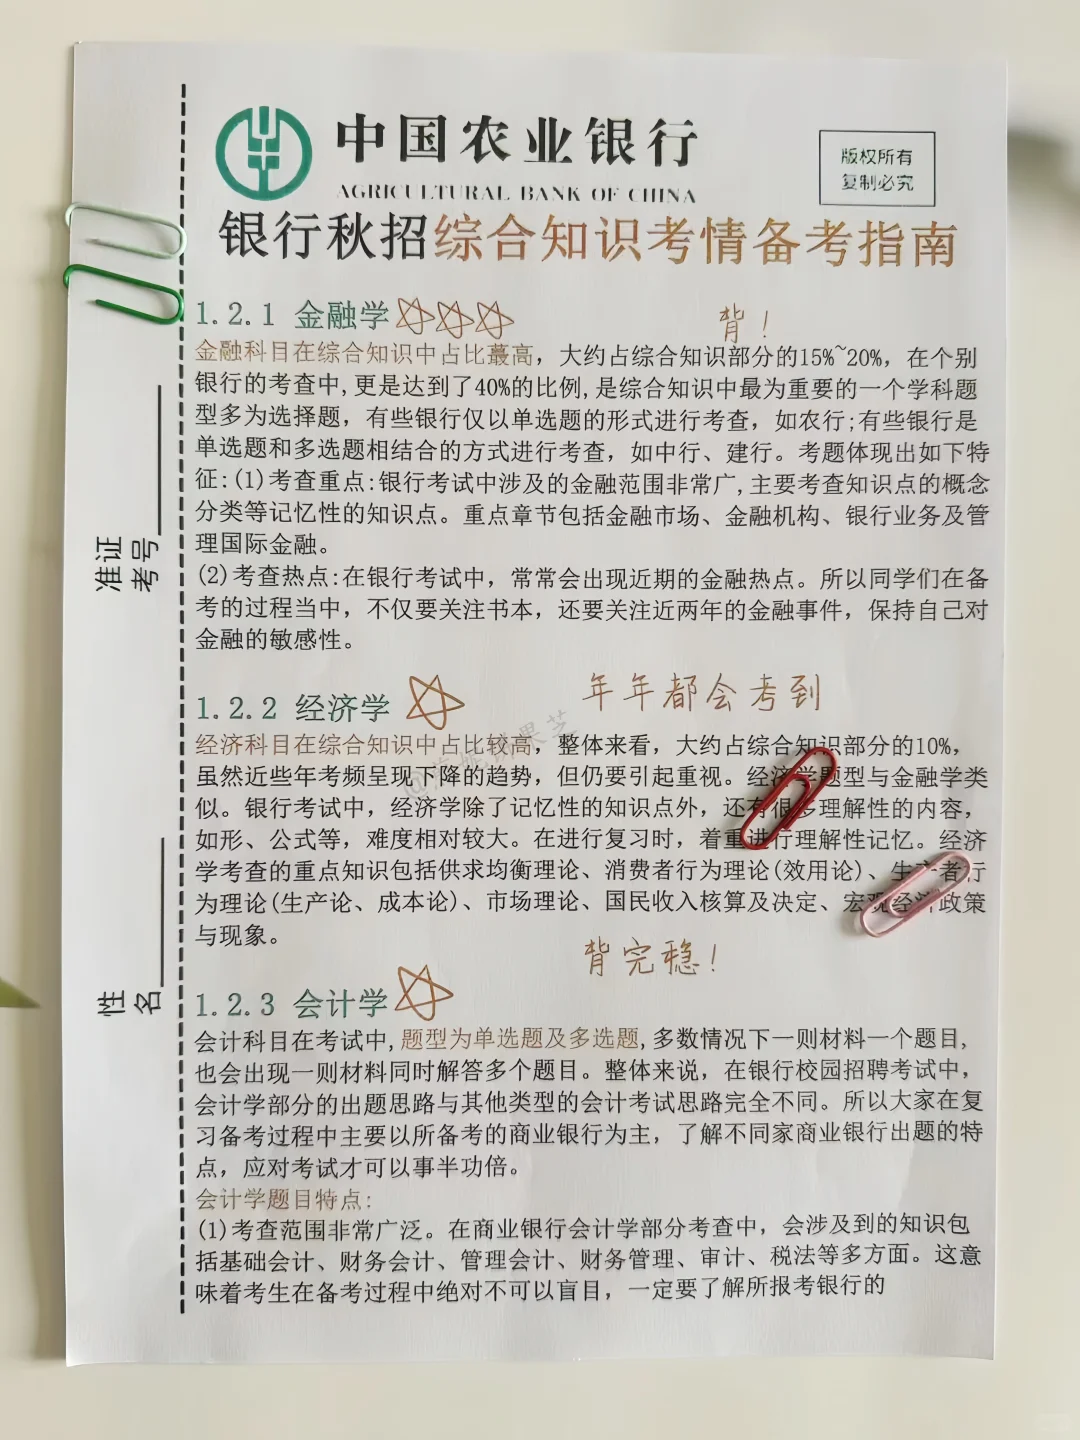 中国农业银行
AGRICULTURAL BANK OF CHINA
版权所有
复制必究
银行秋招综合知识考情备考指南
1.2.1 金融学
背！
金融科目在综合知识中占比蕞高，大约占综合知识部分的15%~20%，在个别
银行的考查中,更是达到了40%的比例,是综合知识中最为重要的一个学科题
型多为选择题，有些银行仅以单选题的形式进行考查，如农行;有些银行是
单选题和多选题相结合的方式进行考查，如中行、建行。考题体现出如下特
征:(1)考查重点:银行考试中涉及的金融范围非常广,主要考查知识点的概念
分类等记忆性的知识点。重点章节包括金融市场、金融机构、银行业务及管
理国际金融。
(2)考查热点:在银行考试中，常常会出现近期的金融热点。所以同学们在备
考的过程当中，不仅要关注书本，还要关注近两年的金融事件，保持自己对
金融的敏感性。
1.2.2 经济学
年年都会考到
经济科目在综合知识中占比较高，整体来看，大约占综合知识部分的10%，
虽然近些年考频呈现下降的趋势，但仍要引起重视。经济学题型与金融学类
似。银行考试中，经济学除了记忆性的知识点外，还有很多理解性的内容，
如形、公式等，难度相对较大。在进行复习时，着重进行理解性记忆。经济
学考查的重点知识包括供求均衡理论、消费者行为理论(效用论)、生产者行
为理论(生产论、成本论)、市场理论、国民收入核算及决定、宏观经济政策
与现象。
背完稳！
1.2.3 会计学
会计科目在考试中,题型为单选题及多选题,多数情况下一则材料一个题目，
也会出现一则材料同时解答多个题目。整体来说，在银行校园招聘考试中，
会计学部分的出题思路与其他类型的会计考试思路完全不同。所以大家在复
习备考过程中主要以所备考的商业银行为主，了解不同家商业银行出题的特
点，应对考试才可以事半功倍。
会计学题目特点:
(1)考查范围非常广泛。在商业银行会计学部分考查中，会涉及到的知识包
括基础会计、财务会计、管理会计、财务管理、审计、税法等多方面。这意
味着考生在备考过程中绝对不可以盲目，一定要了解所报考银行的
准证
考号
姓
名